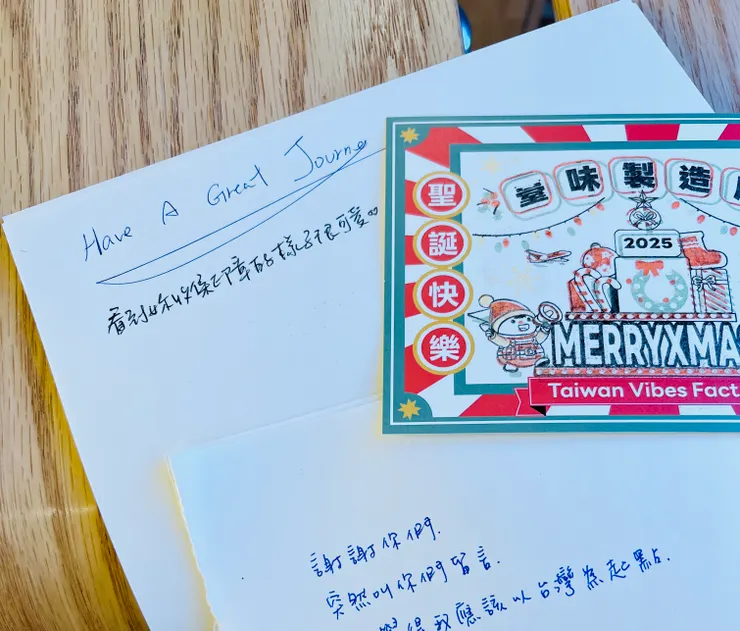 Have A Great Journe
看到妳收集印章的樣子很可愛
聖誕快樂
臺味製造
2025
MERRYXMA
Taiwan Vibes Fact
謝謝你們.
突然叫你們留言.
覺得我應該以台灣為起點.